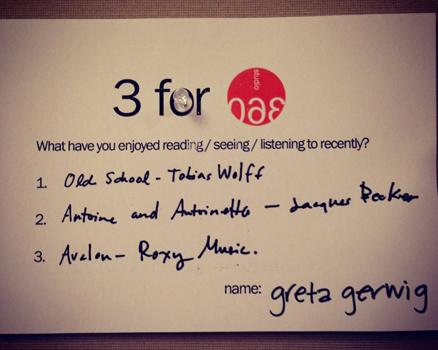 3 for
studio
360
What have you enjoyed reading / seeing / listening to recently?
1. Old School - Tobias Wolff
2. Antoine and Antoinette - Jacques Becker
3. Avalon - Roxy Music.
name: greta gerwig